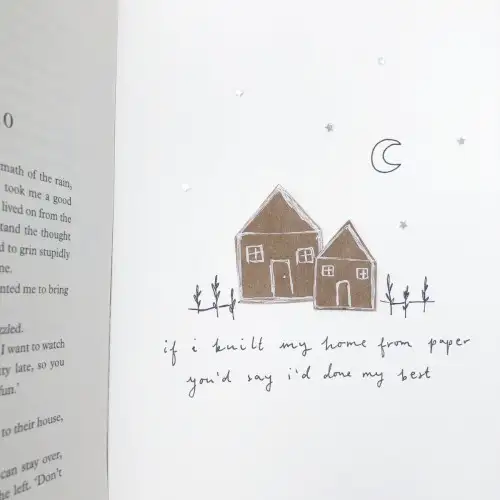 0
math of the rain,
took me a good
lived on from the
tand the thought
d to grin stupidly
ne.
nted me to bring
I want to watch
ity late, so you
fun.'
to their house,
can stay over,
he left. 'Don't
if i built my home from paper
you'd say i'd done my best